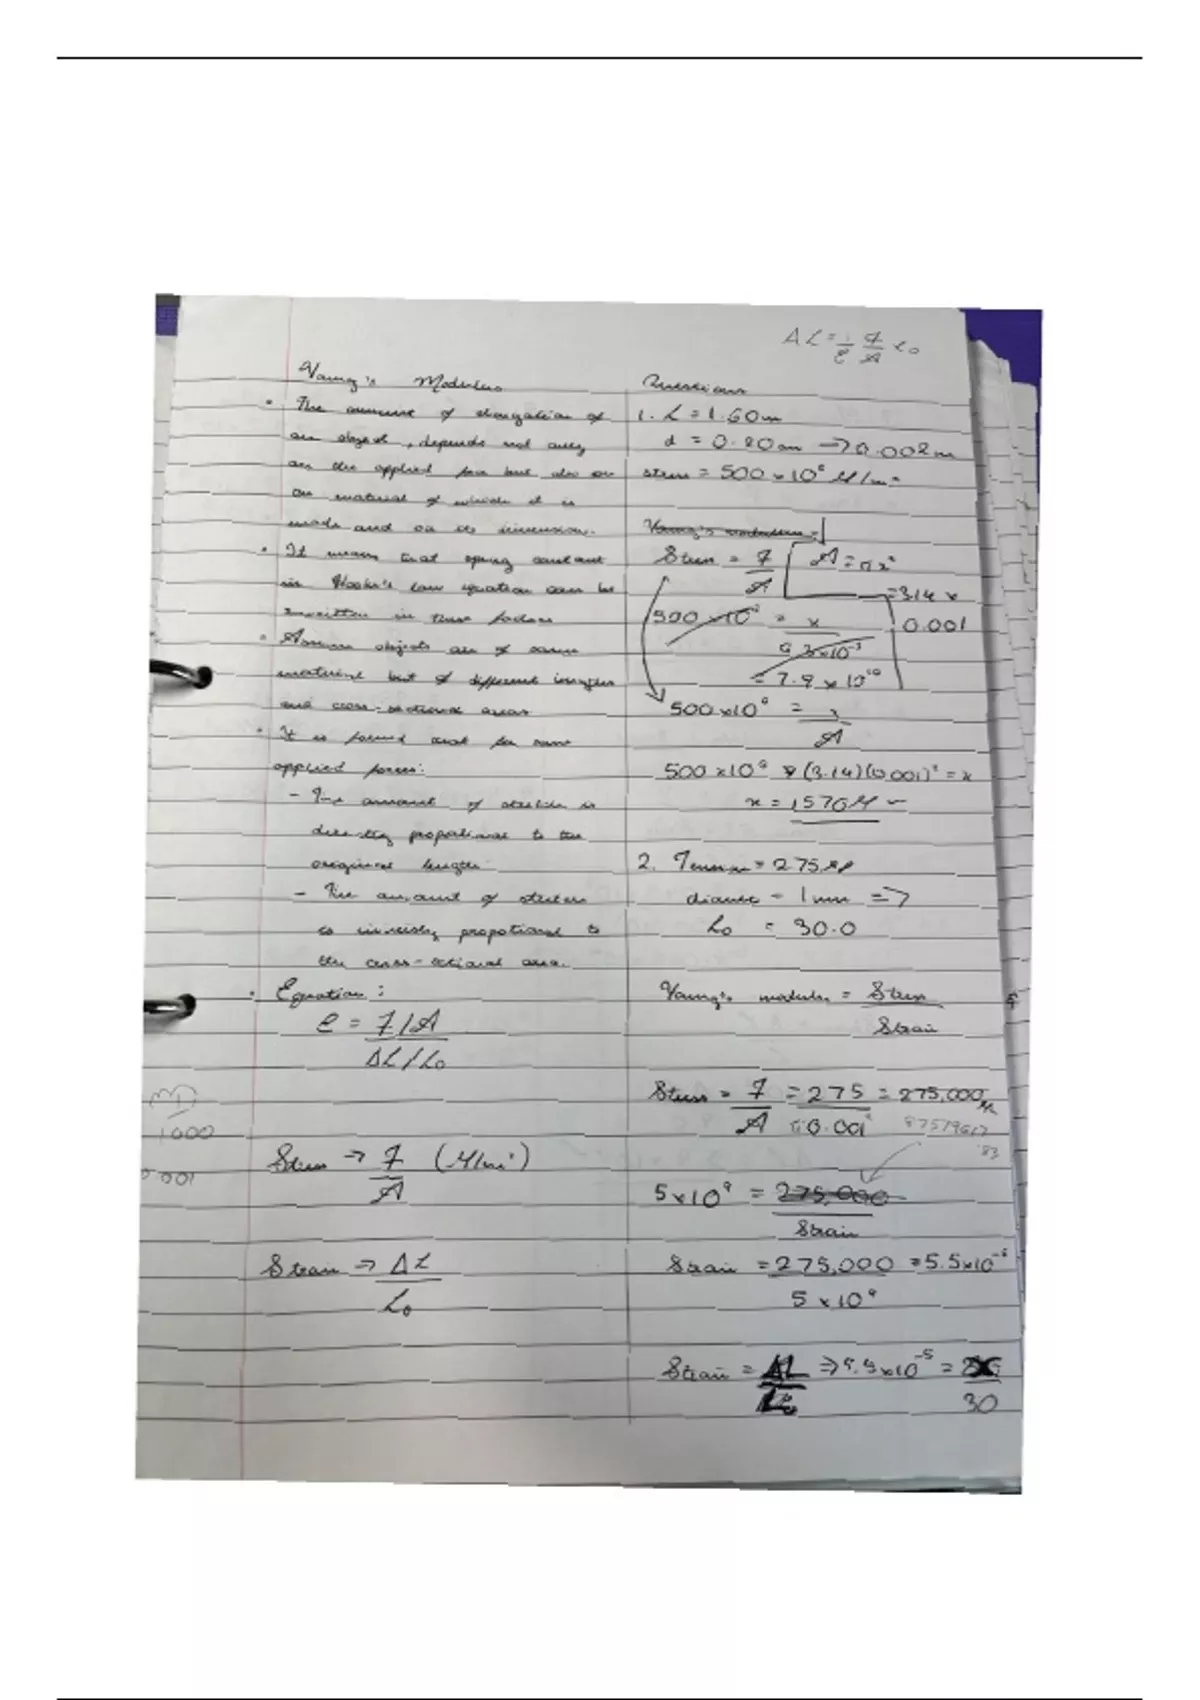 ΔL = 1/E F/A L0
Young's Modulus
• The amount of elongation of
an object, depends not only
on the applied force but also on
on material of which it is
made and on its dimension.
• It means that spring constant
in Hooke's law equation can be
rewritten in these factors
• Assume objects are of same
material but of different lengths
and cross-sectional areas
• It is found that for same
applied forces:
- The amount of stretch is
directly proportional to the
original length
- The amount of stretch
is inversly propotional to
the cross-sectional area.
• Equation:
E = F/A
ΔL/L0
1000
0.001
Stress → F (N/m²)
A
Strain → ΔL
L0
Questions
1. L = 1.60m
d = 0.20cm → 0.002m
stress = 500 × 10⁶ N/m²
Young's modulus =
Stress = F
A
A = πr²
= 3.14 ×
0.001
500 × 10⁶ = x
6.3×10⁻³
= 7.9 × 10¹⁰
500×10⁶ = x
A
500 ×10⁶ × (3.14)(0.001)² = x
x = 1570N
2. Tension = 275 N
diameter = 1mm =>
L0 = 30.0
Young's modulus = Stress
Strain
Stress = F = 275 = 275,000
A π0.001²
5×10⁹ = 275,000
Strain
Strain = 275,000 = 5.5×10⁻⁵
5 × 10⁹
Strain = ΔL → 5.5×10⁻⁵ =
L0 30